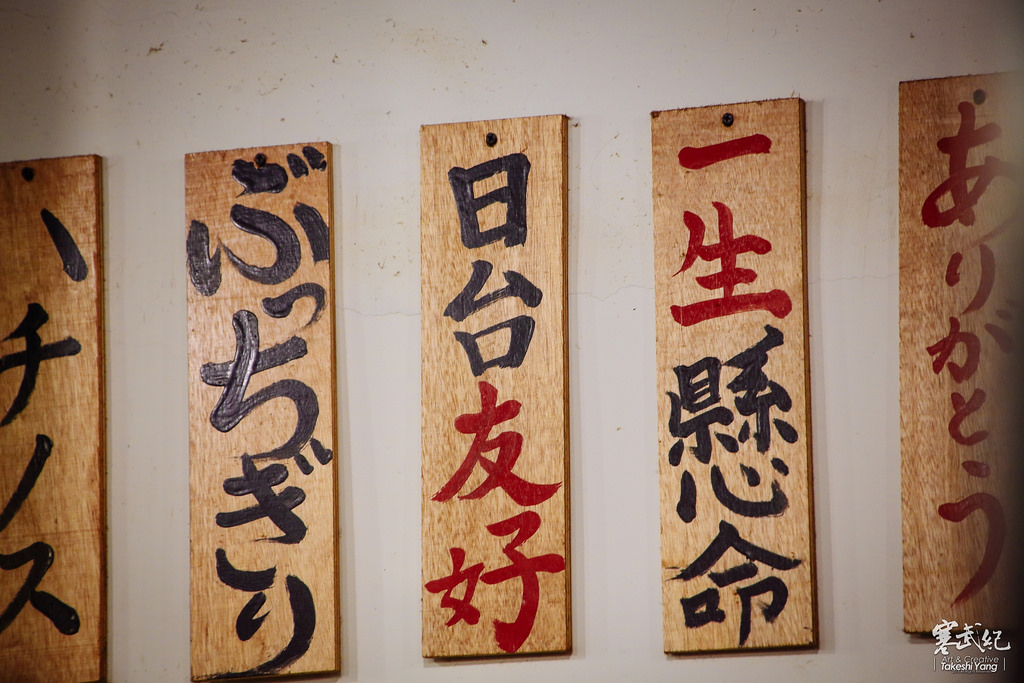 ハチノス
ぶっちぎり
日台友好
一生懸命
ありがとう
寒武紀
Art & Creative
Takeshi Yang